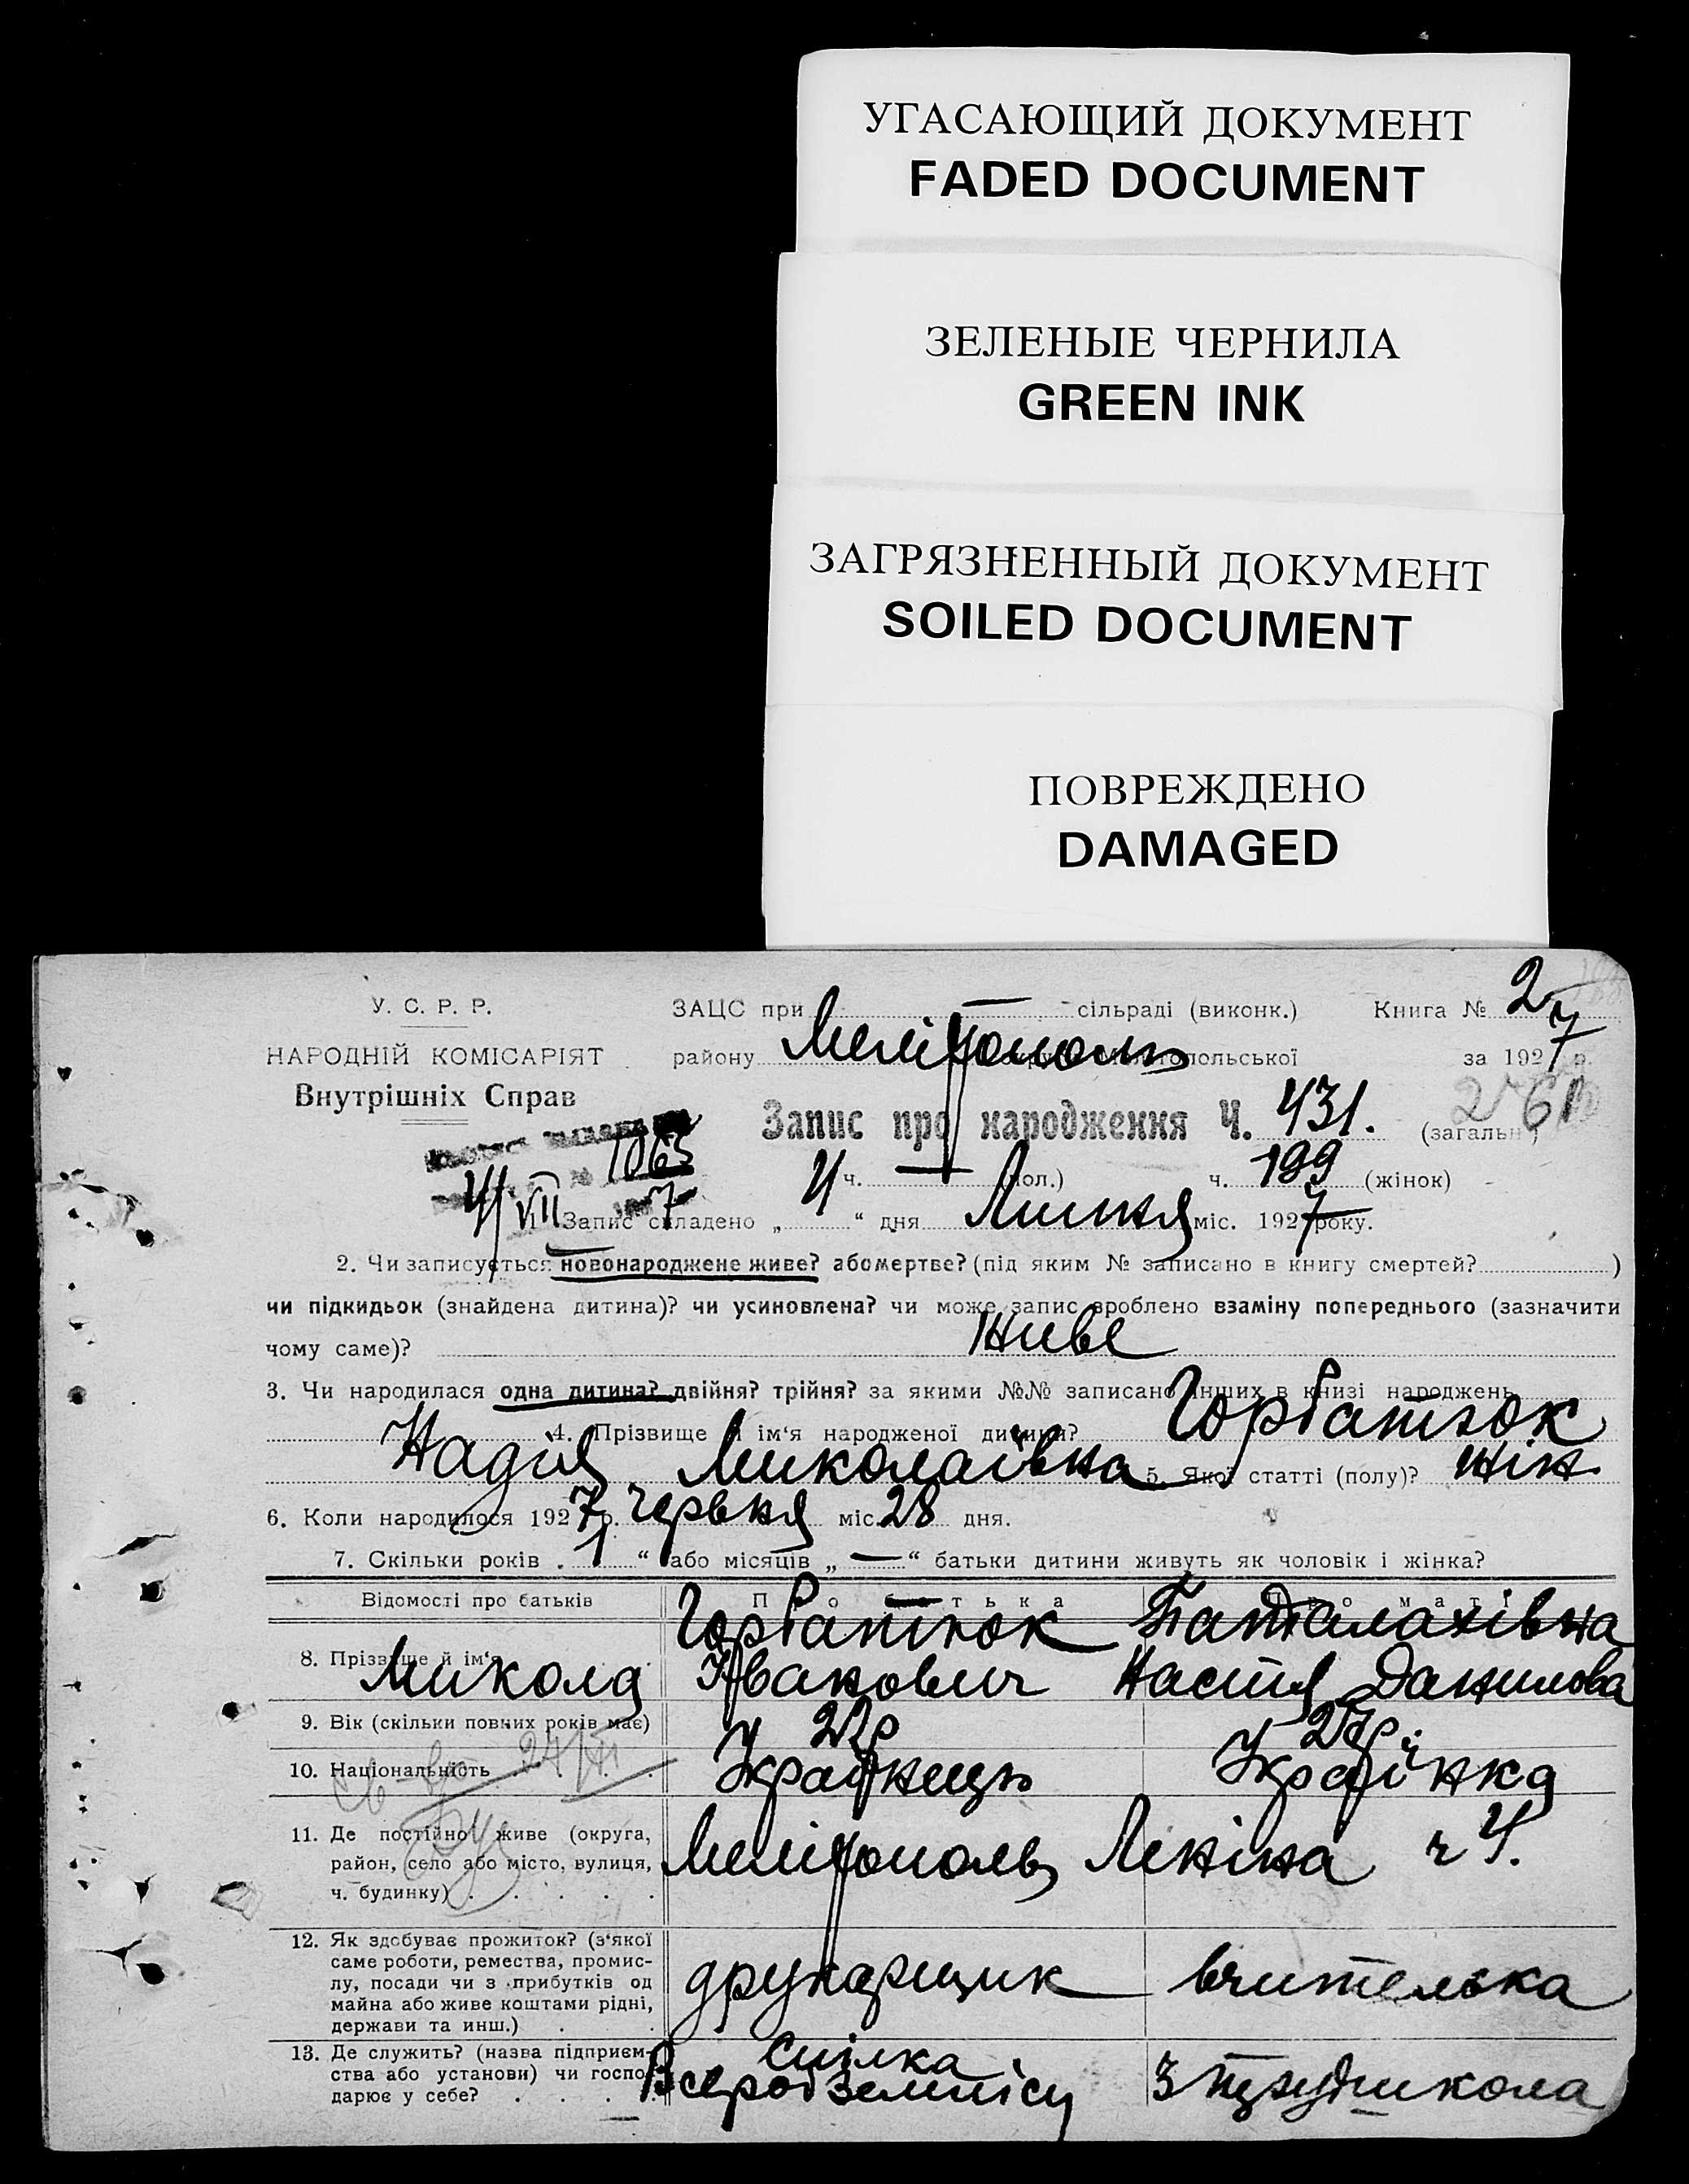 УГАСАЮЩИЙ ДОКУМЕНТ
FADED DOCUMENT
ЗЕЛЕНЫЕ ЧЕРНИЛА
GREEN INK
ЗАГРЯЗНЕННЫЙ ДОКУМЕНТ
SOILED DOCUMENT
ПОВРЕЖДЕНО
DAMAGED
У. С. Р. Р.
НАРОДНІЙ КОМІСАРІЯТ
Внутрішніх Справ
ЗАЦС при — сільраді (виконк.) Книга № 2
району Мелітополь Мелітопольської за 1927 р.
Запис про народження Ч. 431. (загальн.)
ч. — (чол.) ч. 199 (жінок)
1063
4/VII 7
1. Запис складено „ 4 “ дня Липня міс. 1927 року.
2. Чи записується новонароджене живе? або мертве? (під яким № записано в книгу смертей? )
чи підкидьок (знайдена дитина)? чи усиновлена? чи може запис зроблено взаміну попереднього (зазначити
чому саме)? живе
3. Чи народилася одна дитина? двійня? трійня? за якими №№ записано інших в книзі народжень
4. Прізвище й ім‘я народженої дитини? Горбатюк
Надія Миколаївна 5. Якої статті (полу)? жін.
6. Коли народилося 1927 р. червня міс. 28 дня.
7. Скільки років . 1 “ або місяців „ — “ батьки дитини живуть як чоловік і жінка?
Відомості про батьків Про батька Про матір
8. Прізвище й ім‘я Горбатюк
Микола Іванович Настя Данилова
9. Вік (скільки повних років має) 22р 27р.
10. Національність Українець Українка
11. Де постійно живе (округа,
район, село або місто, вулиця,
ч. будинку) Мелітополь Леніна ч 4.
12. Як здобуває прожиток? (з‘якої
саме роботи, ремества, промис-
лу, посади чи з прибутків од
майна або живе коштами рідні,
держави та инш.) друкарщик вчителька
13. Де служить? (назва підприєм-
ства або установи) чи госпо-
дарює у себе? Спілка
Всеробземлісу 3 трудшкола